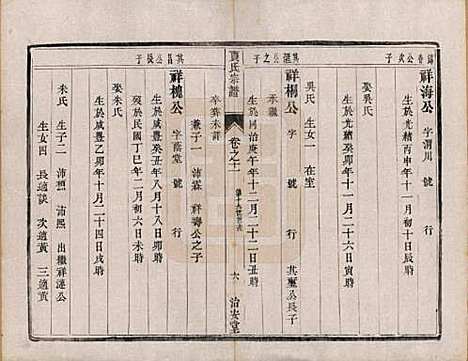 錦春公次子
祥海公 字渭川 號 行
生於光緒丙申年十一月初十日辰時
娶吳氏
生於光緒癸卯年十一月十六日寅時
吳氏 生女一 在室
其溫公之子
祥楊公 字 號 行 其璽公長子
承繼
生於同治庚午年十二月二十二日丑時
卒葬未詳
兼子一 沛霖 祥壽公之子
賈氏宗譜 卷之十一 六 治安堂
其昌公從子
祥槐公 字蔭堂 號 行
生於咸豐乙卯年八月十八日亥時
歿於民國丁巳年十二月初六日戌時
娶朱氏
生於咸豐乙卯年十二月二十四日未時
朱氏 生子二 沛澗 沛熙 出繼祥漢公
生女四 長適談 次適黃 三適黃